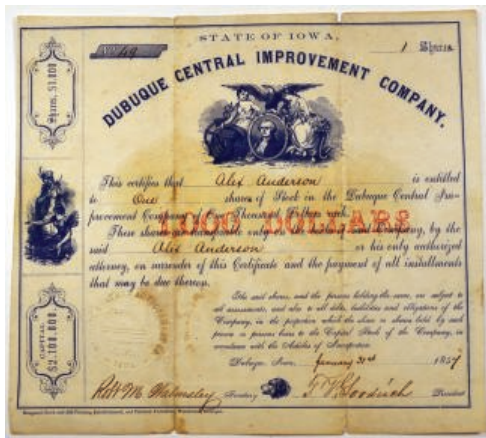 STATE OF IOWA,
No. 49
1 Shares
DUBUQUE CENTRAL IMPROVEMENT COMPANY.
Shares, $1,000
This certifies that Alex Anderson is entitled
to One shares of Stock in the Dubuque Central Im-
provement Company of One Thousand Dollars each.
1,000 DOLLARS
These shares are transferable only on the Company, by the
said Alex Anderson or his only authorized
attorney, on surrender of this Certificate and the payment of all installments
that may be due thereon.
The said shares, and the persons holding the same, are subject to
all assessments, and also to all debts, liabilities and obligations of the
Company, in the proportion which the share or shares held by each
person or persons bears to the Capital Stock of the Company, in
accordance with the Articles of Incorporation.
CAPITAL
$2,100,000.
Dubuque, Iowa, January 31st 1857
Robt M. Walmsley Secretary
F. V. Goodrich President